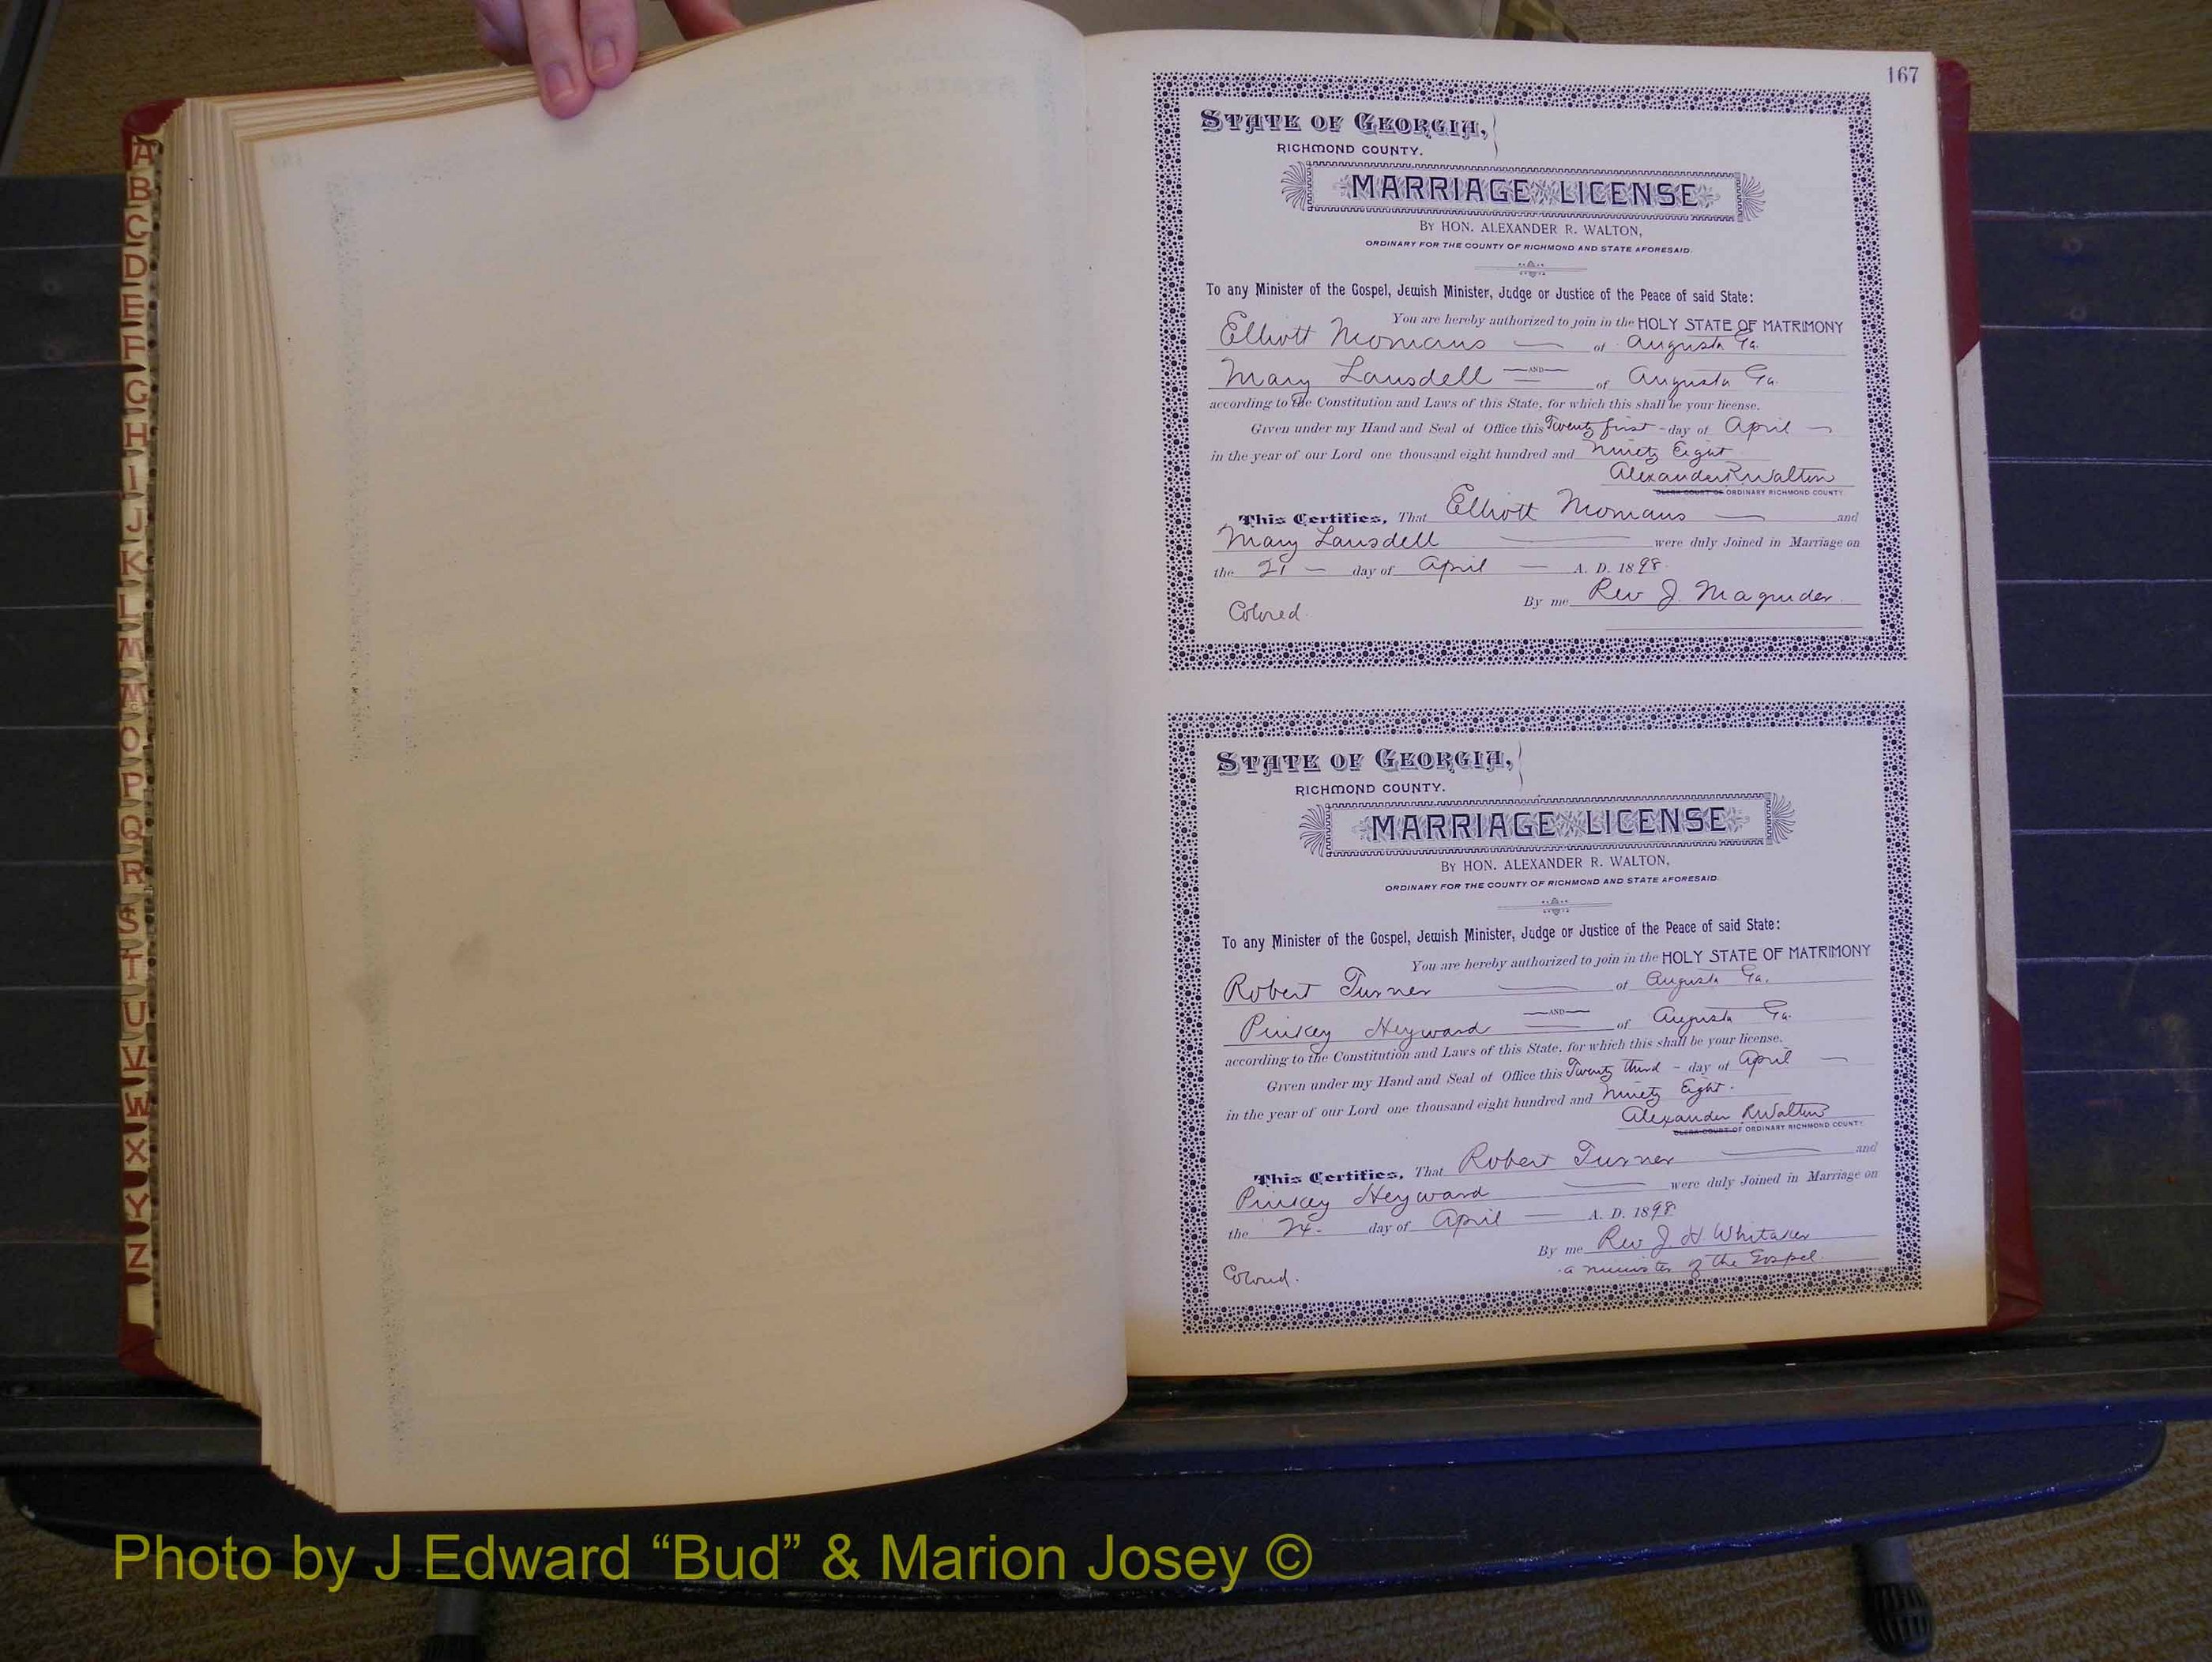 167
STATE OF GEORGIA,
RICHMOND COUNTY.
MARRIAGE LICENSE
BY HON. ALEXANDER R. WALTON,
ORDINARY FOR THE COUNTY OF RICHMOND AND STATE AFORESAID.
To any Minister of the Gospel, Jewish Minister, Judge or Justice of the Peace of said State:
You are hereby authorized to join in the HOLY STATE OF MATRIMONY
Elliott Momans of Augusta Ga.
AND
Mary Lansdell of Augusta Ga.
according to the Constitution and Laws of this State, for which this shall be your license.
Given under my Hand and Seal of Office this Twenty first - day of April
in the year of our Lord one thousand eight hundred and Ninety Eight
Alexander R Walton
CLERK COURT OF ORDINARY RICHMOND COUNTY
This Certifies, That Elliott Momans and
Mary Lansdell were duly Joined in Marriage on
the 21 day of April A. D. 1898.
By me Rev J. Magruder.
Colored.
STATE OF GEORGIA,
RICHMOND COUNTY.
MARRIAGE LICENSE
BY HON. ALEXANDER R. WALTON,
ORDINARY FOR THE COUNTY OF RICHMOND AND STATE AFORESAID.
To any Minister of the Gospel, Jewish Minister, Judge or Justice of the Peace of said State:
You are hereby authorized to join in the HOLY STATE OF MATRIMONY
Robert Turner of Augusta Ga.
AND
Pinkey Heyward of Augusta Ga.
according to the Constitution and Laws of this State, for which this shall be your license.
Given under my Hand and Seal of Office this Twenty third - day of April
in the year of our Lord one thousand eight hundred and Ninety Eight.
Alexander R Walton
CLERK COURT OF ORDINARY RICHMOND COUNTY
This Certifies, That Robert Turner and
Pinkey Heyward were duly Joined in Marriage on
the 24 - day of April A. D. 1898
By me Rev J. H. Whitaker
a minister of the Gospel.
Colored.
A
B
C
D
E
F
G
H
I
J
K
L
M
Mc
O
P
Q
R
S
T
U
V
W
X
Y
Z
Photo by J Edward “Bud” & Marion Josey ©